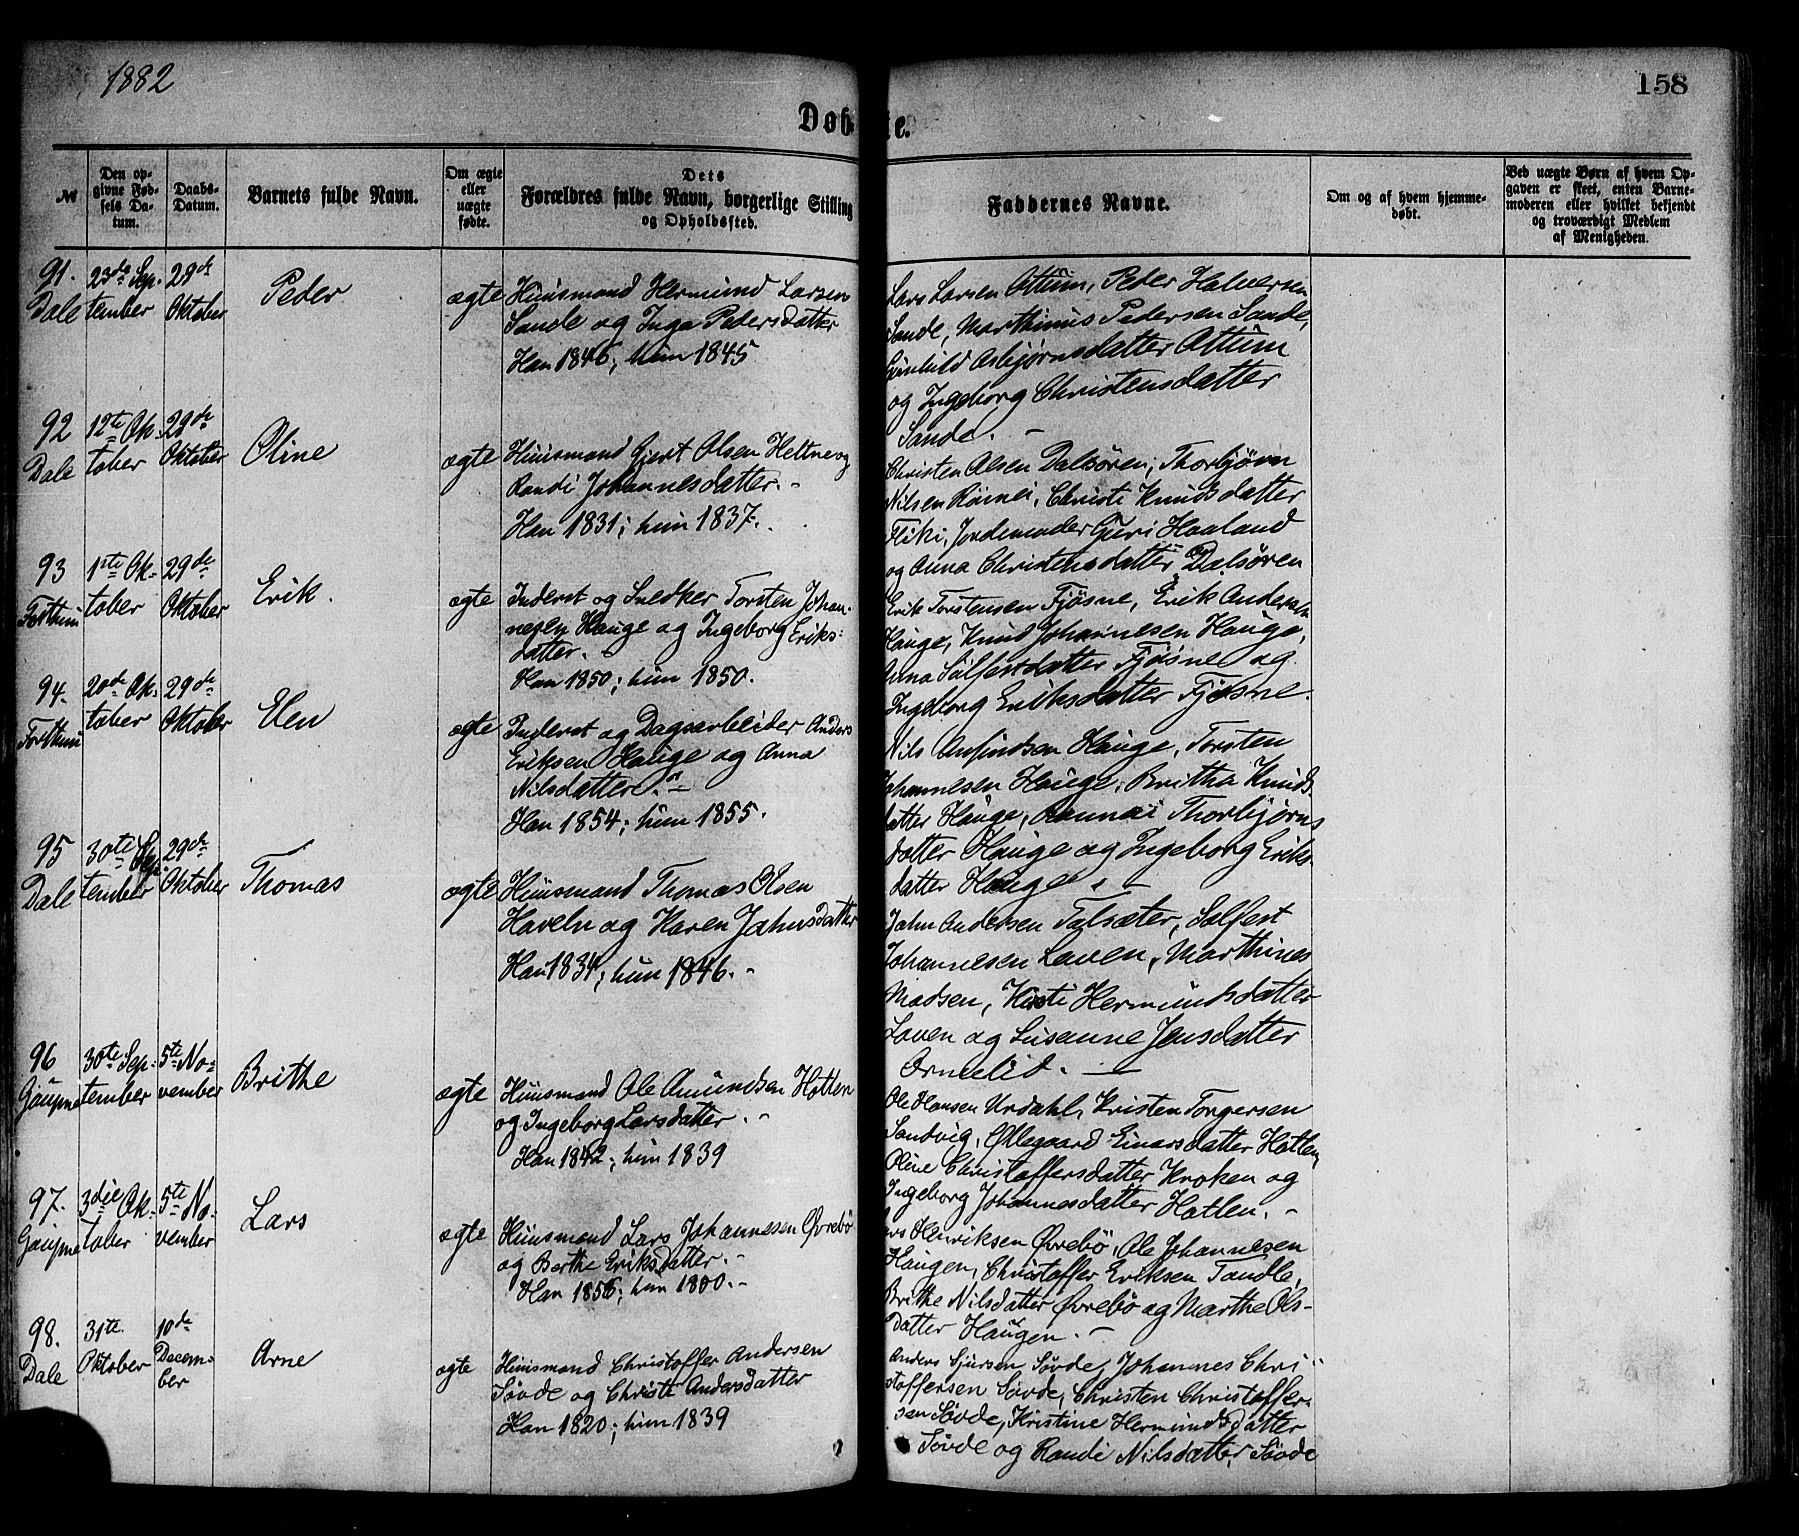 1882
158
Døbte.
№
Den op-
givne Fød-
sels Da-
tum.
Daabs-
Datum.
Barnets fulde Navn.
Om ægte
eller
uægte
fødte.
Dets
Forældres fulde Navn, borgerlige Stilling
og Opholdssted.
Faddernes Navne.
Om og af hvem hjemme-
døbt.
Ved uægte Børn af hvem Op-
gaven er skeet, enten Barne-
moderen eller hvilket bekjendt
og troværdigt Medlem
af Menigheden.
91.
Dale
23de Sep-
tember
29de
Oktober
Peder
ægte
Huusmand Hermund Larsen
Sande og Inga Pedersdatter
Han 1846; hun 1845
Lars Larsen Ottum, Peder Halvorsen
Sande, Marthinus Pedersen Sande,
Asbjørnsdatter Ottum
og Ingeborg Christensdatter
Sande. -
92
Dale
12te Ok-
tober
29de
Oktober
Oline
ægte
Huusmand Gjert Olsen Heltne og
Randi Johannesdatter. -
Han 1831; hun 1837.
Christen Olsen Dalsøren, Thorbjørn
Nilsen Røinei, Christi Knudsdatter
Fliki, Jordemoder Guri Haaland
og Anna Christensdatter Dalsøren
93
Forthun
1ste Ok-
tober
29de
Oktober
Erik.
ægte
Inderst og Snedker Torsten Johan-
nesen Hauge og Ingeborg Eriks-
datter. -
Han 1850; hun 1850.
Erik Torstensen Fjøsne, Erik Andersen
Hauge, Knud Johannesen Hauge,
Anna Solfestdatter Fjøsne og
Ingeborg Eriksdatter Fjøsne.
94.
Forthun
20de Ok-
tober
29de
Oktober
Elen
ægte
Inderst og Dagsarbeider Anders
Eriksen Hauge og Anna
Nilsdatter. -
Han 1854; hun 1855.
Nils Anfindsen Hauge, Torsten
Johannesen Hauge, Britha Knuds-
datter Hauge, Thorbjørns
datter Hauge og Ingeborg Eriks-
datter Hauge. -
95
Dale
30te Sep-
tember
29de
Oktober
Thomas
ægte
Huusmand Thomas Olsen
Haveln og Karen Johnsdatter
Han 1834; hun 1846. -
John Andersen Talsæter, Solfest
Johannesen Laven, Marthines
Madsen, Kirsti Hermundsdatter
Laven og Susanne Jensdatter
Ormelid. -
96
Gaupne
30te Sep-
tember
5te No-
vember
Brithe
ægte
Huusmand Ole Amundsen Hatlen
og Ingeborg Larsdatter. -
Han 1842; hun 1839
Ole Hansen Urdahl, Kristen Torgersen
Sandvig, Øllegaard Einarsdatter Hatlen,
Oline Christoffersdatter Kroken og
Ingeborg Johannesdatter Hatlen. -
97.
Gaupne
3die Ok-
tober
5te No-
vember
Lars
ægte
Huusmand Lars Johannesen Øvrebø
og Berthe Eriksdatter. -
Han 1856; hun
Lars Henriksen Øvrebø, Ole Johannesen
Haugen, Christoffer Eriksen Tandle,
Brithe Nilsdatter Øvrebø og Marthe Ols-
datter Haugen. -
98.
Dale
31te
Oktober
10de
Decem-
ber
Arne
ægte
Huusmand Christoffer Andersen
Søvde og Christi Andersdatter
Han 1820; hun 1839
Anders Sjursen Søvde, Johannes Chri-
stoffersen Søvde, Christen Christoffer-
sen Søvde, Kristine Hermundsdatter
Søvde og Randi Nilsdatter Søvde